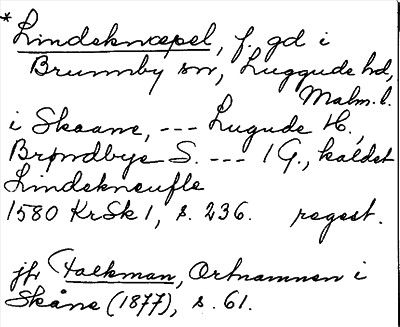 * Lindeknæpel, f. gd i
Brunnby sn, Luggude hd,
Malm. l.
i Skaane, --- Lugude H.,
Brøndbye S. --- 1 G., kaldet
Lindekneufle
1580 KrSk 1, s. 236. regest.
jfr Falkman, Ortnamnen i
Skåne (1877), s. 61.